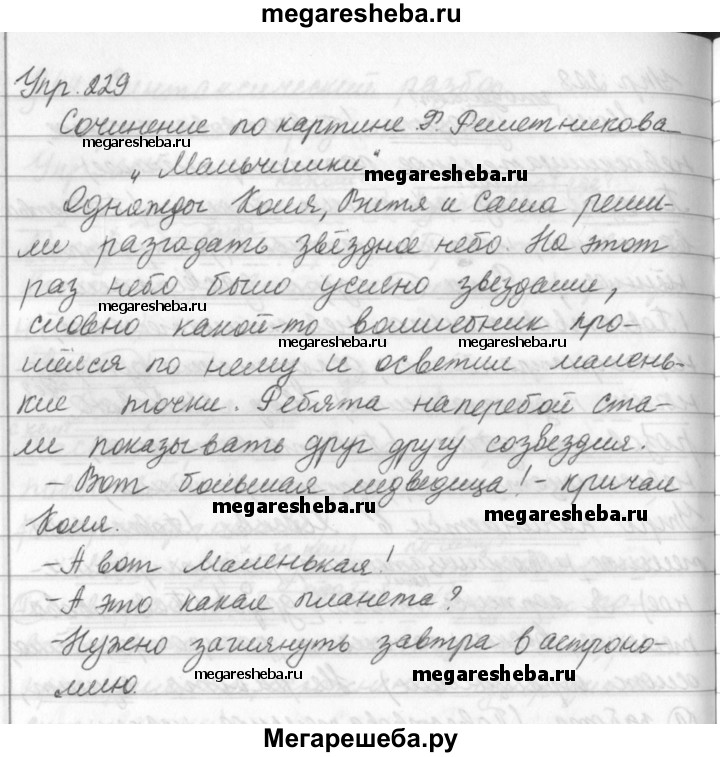 megaresheba.ru
Упр. 229
Сочинение по картине Ф. Решетникова
megaresheba.ru
„Мальчишки“
megaresheba.ru
Однажды Коля, Витя и Саша реши-
ли разгадать звёздное небо. На этот
раз небо было усеяно звездами,
megaresheba.ru
словно какой-то волшебник про-
megaresheba.ru megaresheba.ru
шёлся по нему и осветил малень-
кие точки. Ребята наперебой ста-
ли показывать друг другу созвездия.
- Вот большая медведица! - кричал
megaresheba.ru megaresheba.ru
Коля.
- А вот Маленькая!
- А это какая планета?
- Нужно заглянуть завтра в астроно-
megaresheba.ru megaresheba.ru
мию.
Мегарешеба.ру